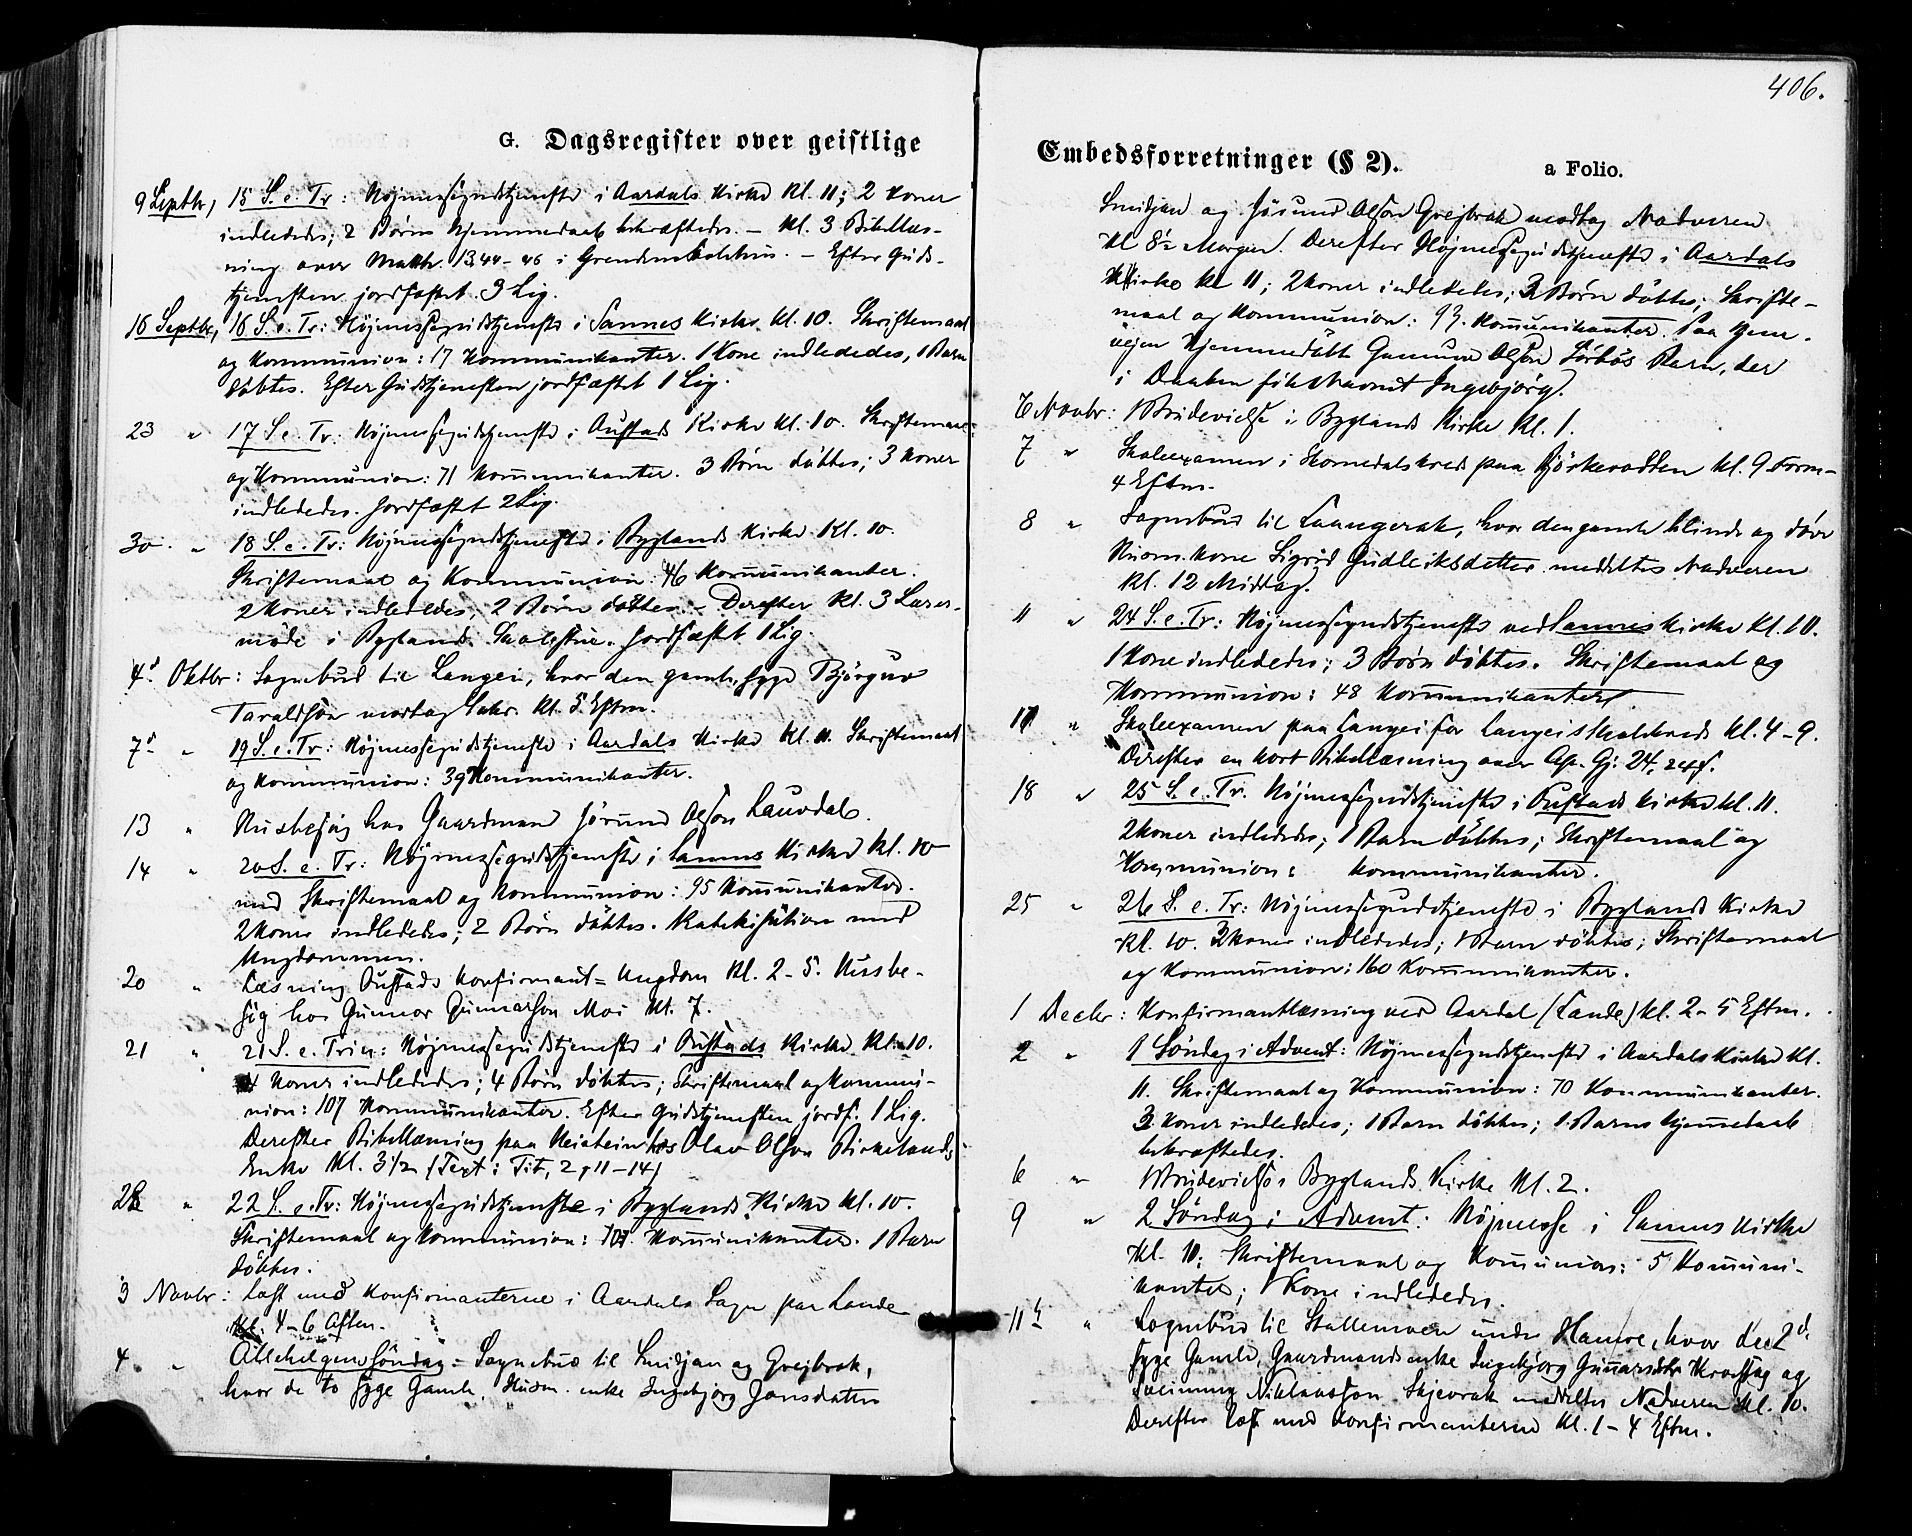 406.
G. Dagsregister over geistlige
9 Septbr, 15 S. e. Tr: Højmessegudstjeneste i Aardals Kirke Kl. 11; 2 Koner
indlededes; 2 Børns Hjemmedaab bekræftedes. - Kl. 3 Bibellæs-
ning over Matth. 13,44-46 i . - Efter Guds-
tjenesten jordfæstet 3 Lig.
16 Septbr, 16 S. e. Tr: Højmessegudstjeneste i Sannes Kirke Kl. 10. Skriftemaal
og Kommunion: 17 Kommunikanter. 1 Kone indlededes, 1 Barn
döbtes. Efter Gudstjenesten jordfæstet 1 Lig.
23 " 17 S. e. Tr: Højmessegudstjeneste i Austads Kirke Kl. 10. Skriftemaal
og Kommunion: 71 Kommunikanter. 3 Børn döbtes; 3 Koner
indlededes. Jordfæstet 2 Lig.
30 " 18 S. e. Tr: Højmessegudstjeneste i Byglands Kirke Kl. 10.
Skriftemaal og Kommunion: 46 Kommunikanter.
2 Koner indlededes, 2 Børn döbtes. - Derefter Kl. 3 Lærer-
möde i Byglands Skolestue. Jordfæstet 1 Lig.
4 Oktbr: Sognebud til Langei, hvor den gamle, syge Björguv
Taraldsön modtog Sakr. Kl. 5 Eftm.
7 " 19 S. e. Tr: Højmessegudstjeneste i Aardals Kirke Kl. 11. Skriftemaal
og Kommunion: 39 Kommunikanter.
13 " Husbesög hos Gaardmand Jörund Olsön Lauvdal.
14 " 20 S. e. Tr: Højmessegudstjeneste i Sannes Kirke Kl. 10
med Skriftemaal og Kommunion: 95 Kommunikanter.
2 Koner indlededes; 2 Börn döbtes. Katekisation med
Ungdommen.
20 " Læsning Austads Konfirmant-Ungdom Kl. 2-5. Husbe-
sög hos Gunnar Gunnarson Moi Kl. 7.
21 " 21 S. e. Trin: Højmessegudstjeneste i Austads Kirke Kl. 10.
4 Koner indlededes; 4 Börn döbtes; Skriftemaal og Kommu-
nion: 107 Kommunikanter. Efter Gudstjenesten jordf. 1 Lig.
Derefter Bibellæsning paa hos Olav Olsön Birkelands
Enke Kl. 3 1/2 (Text: Tit, 2, 11-14)
28 " 22 S. e. Tr: Højmessegudstjeneste i Byglands Kirke Kl. 10.
Skriftemaal og Kommunion: Kommunikanter. 1 Barn
döbtes.
3 Novbr: Læst med Konfirmanterne i Aardals Sogn paa Lande
Kl. 4-6 Aften.
4 " Allehelgens Söndag = Sognebud til Smidjan og Grejbrok,
hvor de to syge Gamle, Husm. enke Ingebjörg Jonsdatter
Embedsforretninger (§ 2). a Folio.
Smidjan og Jösund Olsön Grejbrok modtog Nadveren
Kl 8½ Morgen. Derefter Højmessegudstjeneste i Aardals
Kirke Kl 11; 2 Koner indlededes; 3 Børn döbtes; Skrifte-
maal og Kommunion: 93 Kommunikanter. Paa Hjem-
vejen hjemmedöbt Gunnund Olsön Barn, der
i Daaben fik Navnet Ingebjörg.
6 Novbr: 1 Brudevielse i Byglands Kirke Kl. 1.
7 " Skoleexamen i paa Kl. 9 Form-
4 Eftm.
8 " Sognebud til Laangerak, hvor den gamle blinde og döve
Husm. Kone Sigrid Gudleiksdatter meddeltes Nadveren
Kl. 12 Middag.
11 " 24 S. e. Tr: Højmessegudstjeneste ved Sannes Kirke Kl. 10.
1 Kone indlededes; 3 Børn döbtes. Skriftemaal og
Kommunion: 48 Kommunikanter.
17 " Skoleexamen paa Langei for Langeis Skolekreds Kl. 4-9.
Derefter en kort Bibellæsning over Ap. Gj. 24, 24 f.
18 " 25 S. e. Tr. Højmessegudstjeneste i Austads Kirke Kl. 11.
2 Koner indlededes; 1 Barn döbtes; Skriftemaal og
Kommunion: Kommunikanter.
25 " 26 S. e. Tr: Højmessegudstjeneste i Byglands Kirke
Kl. 10. 3 Koner indlededes; 1 Barn döbtes; Skriftemaal
og Kommunion: 160 Kommunikanter.
1 Decbr: Konfirmantlæsning ved Aardal (Lande) Kl. 2-5 Eftm.
2 " 1 Söndag i Advent: Højmessegudstjeneste i Aardals Kirke Kl.
11. Skriftemaal og Kommunion: 70 Kommunikanter.
3 Koner indlededes; 1 Barn döbtes; 1 Barns Hjemmedaab
bekræftedes.
6 " 1 Brudevielse i Byglands Kirke Kl. 2.
9 " 2 Söndag i Advent: Højmesse i Sannes Kirke
Kl. 10: Skriftemaal og Kommunion: 5 Kommuni-
kanter; 1 Kone indlededes.
11 " Sognebud til Stallemoen under Hamre, hvor de 2
syge Gamle, Gaardmandsenke Ingebjörg Gunnarsdatter og
Sveinung Niklausson Skjevrak meddeltes Nadveren Kl. 10.
Derefter læst med Konfirmanterne Kl. 1-4 Eftm.